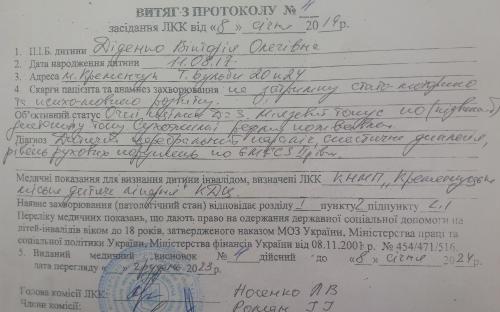 ВИТЯГ З ПРОТОКОЛУ № 4
засідання ЛКК від «8» січня 2019р.
1. П.І.Б. дитини Діденко Вікторія Олегівна
2. Дата народження дитини 11.08.17.
3. Адреса м. Кременчук
4. Скарги пацієнта та анамнез захворювання на затримку стато-моторного
та психо-мовного розвитку.
Об'єктивний статус
Діагноз Дитячий церебральний параліч, спастична диплегія,
рівень рухових порушень по GMFCS
Медичні показання для визнання дитини інвалідом, визначені ЛКК КНМП „Кременчуцька
міська дитяча лікарня" КДЦ.
Наявне захворювання (патологічний стан) відповідає розділу I пункту 2 підпункту 2.1
Переліку медичних показань, що дають право на одержання державної соціальної допомоги на
дітей-інвалідів віком до 18 років, затвердженого наказом МОЗ України, Міністерства праці та
соціальної політики України, Міністерства фінансів України від 08.11.2001р. № 454/471/516.
5. Виданий медичний висновок № 4 дійсний до «8» січня 2024р.
дата перегляду « » грудень 2023р.
Голова комісії ЛКК: Носенко Л В
Члени комісії: